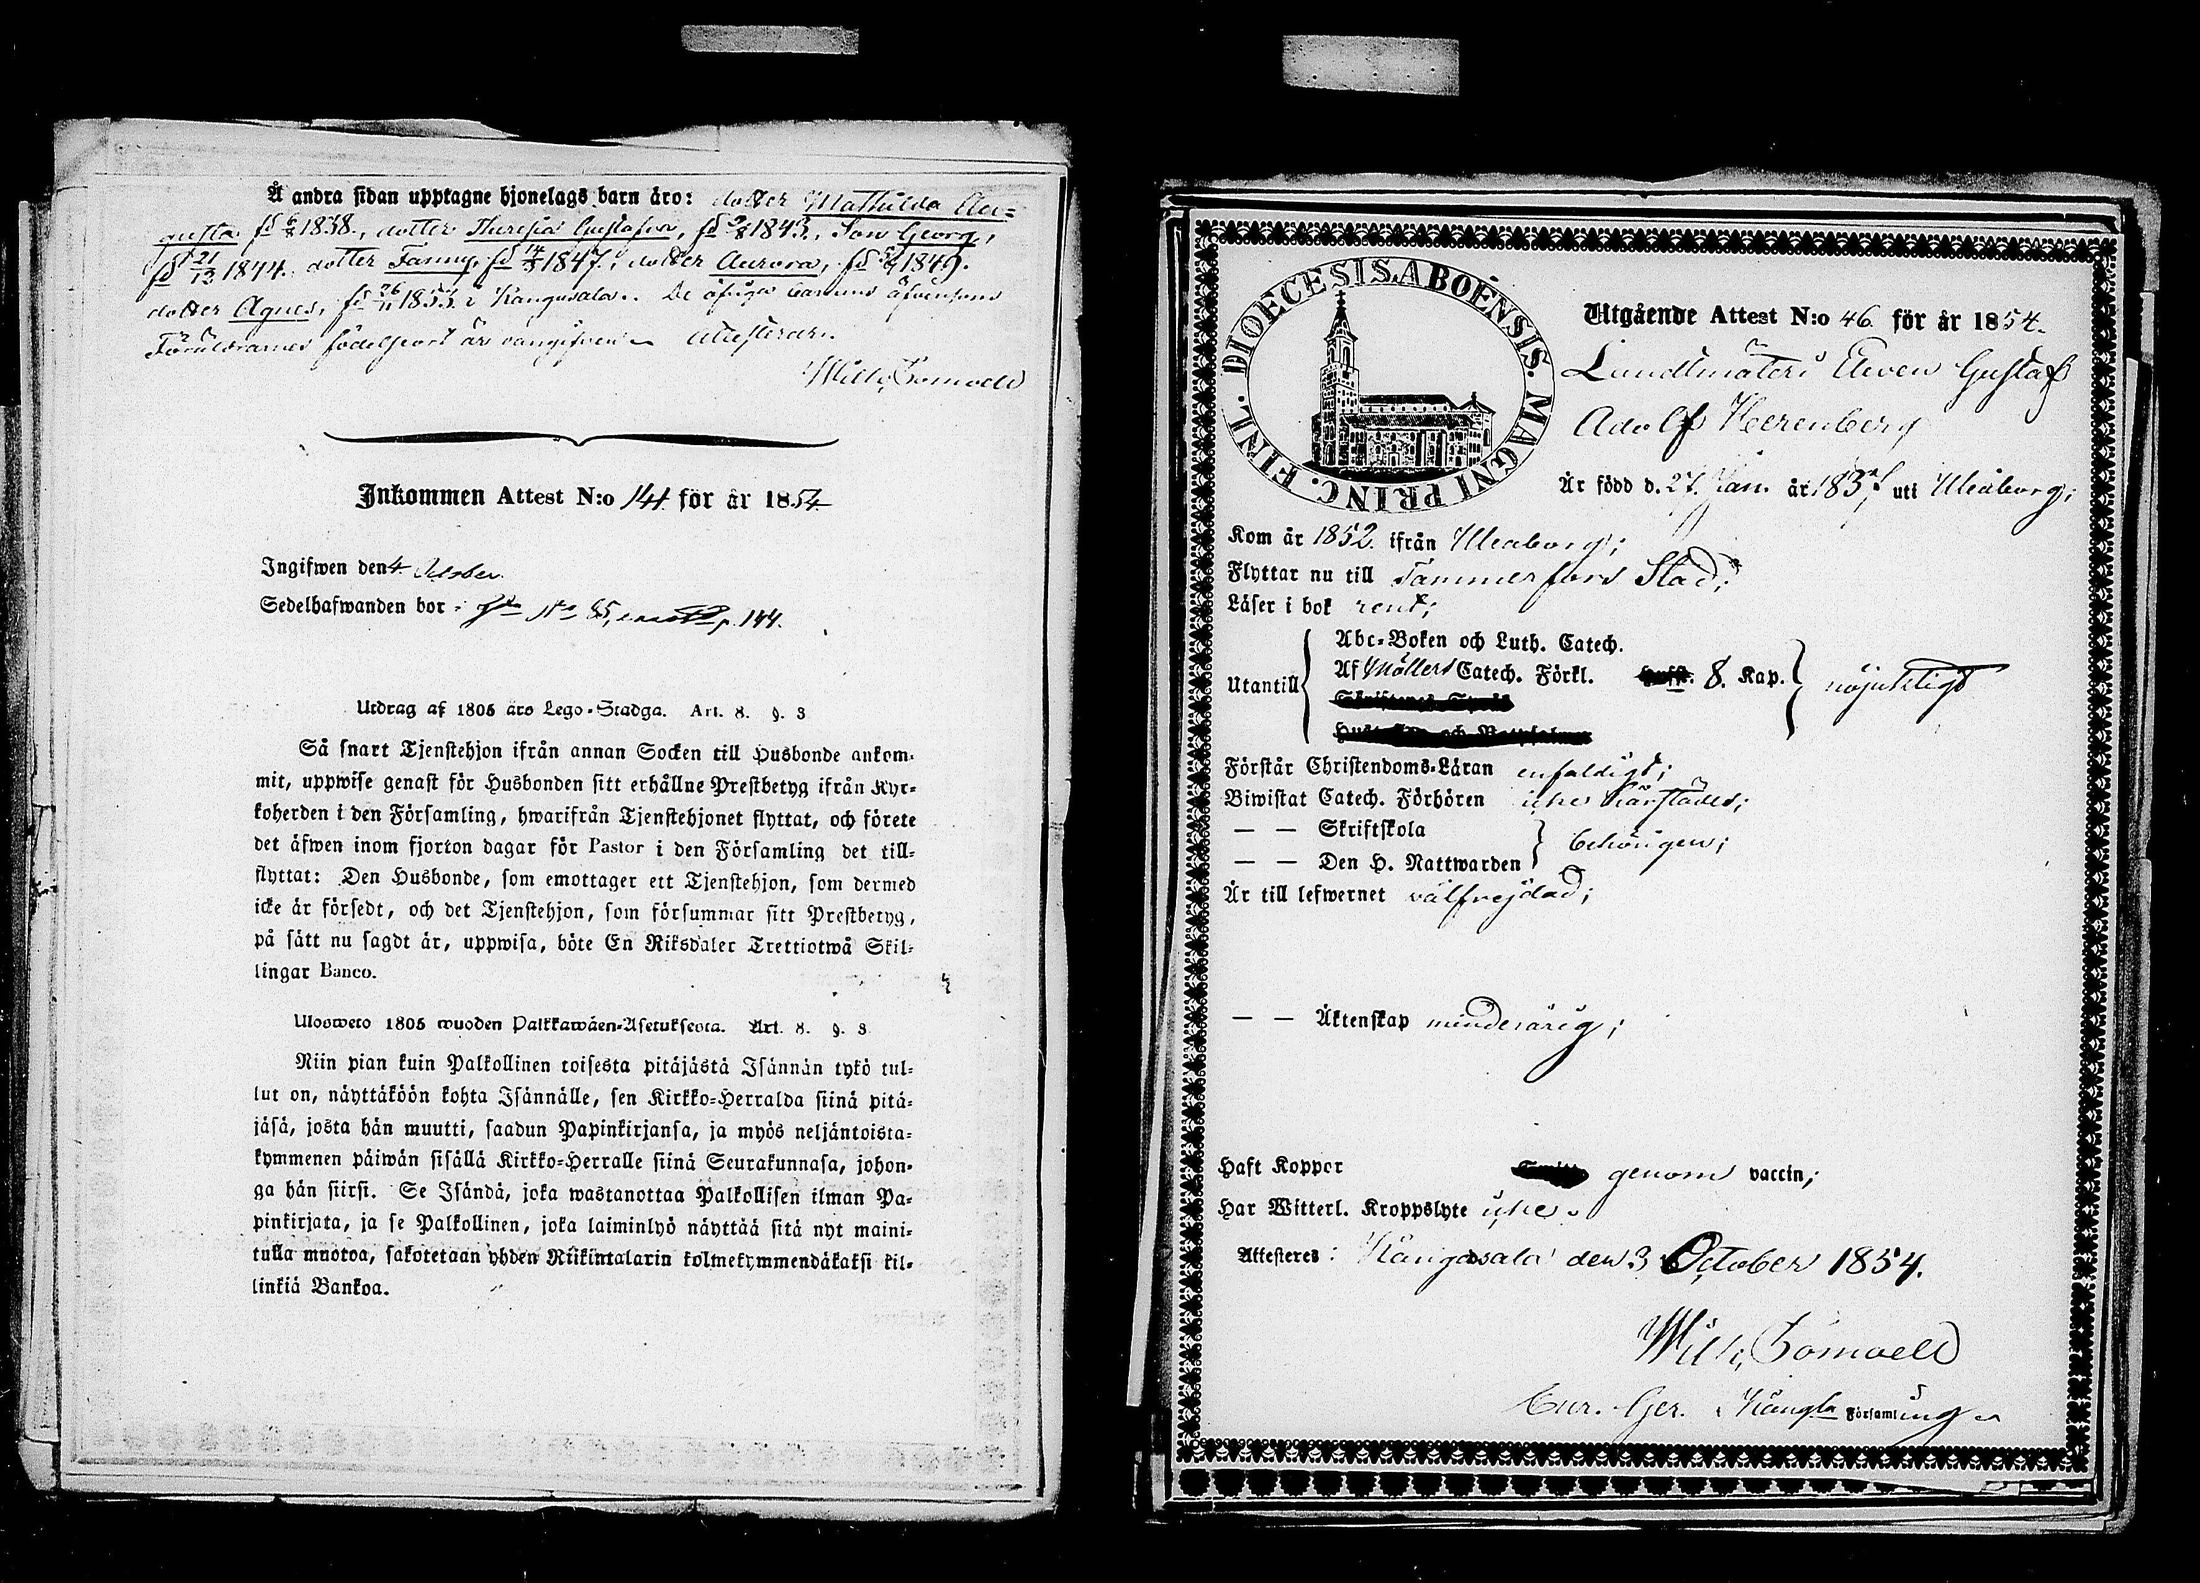 Å andra sidan upptagne hjonelags barn äro: dotter Mathilda Au=
gusta fd 6/8 1838., dotter Theresia Gustafva, fd 2/8 1843., Son Georg,
fd 21/12 1844. dotter Fanny, fd 14/3 1847., dotter Aurora, fd 1849.
dotter Agnes, fd 26/11 1853. i Kangasala. De öfriga barnens äfvensom
Föräldrarnes födelseort är oangifven attesterar.
Wilh.
Inkommen Attest N:o 141. för år 1854.
Ingifwen den 4 October.
Sedelhafwanden bor N:o 85, p. 144.
Utdrag af 1805 års Lego-Stadga. Art. 8. §. 3
Så snart Tjenstehjon ifrån annan Socken till Husbonde ankom=
mit, uppwise genast för Husbonden sitt erhållne Prestbetyg ifrån Kyr=
koherden i den Församling, hwarifrån Tjenstehjonet flyttat, och förete
det äfwen inom fjorton dagar för Pastor i den Församling det till=
flyttat: Den Husbonde, som emottager ett Tjenstehjon, som dermed
icke är försedt, och det Tjenstehjon, som försummar sitt Prestbetyg,
på sätt nu sagdt är, uppwisa, böte En Riksdaler Trettiotwå Skil=
lingar Banco.
Ulosweto 1805 wuoden Palkkawäen-Asetuksesta. Art. 8. §. 3
Niin pian kuin Palkollinen toisesta pitäjästä Isännän tykö tul=
lut on, näyttäköön kohta Isännälle, sen Kirkko=Herralda siinä pitä=
jäsä, josta hän muutti, saadun Papinkirjansa, ja myös neljäntoista=
kymmenen päiwän sisällä Kirkko=Herralle siinä Seurakunnasa, johon=
ga hän siirsi. Se Isändä, joka wastanottaa Palkollisen ilman Pa=
pinkirjata, ja se Palkollinen, joka laiminlyö näyttää sitä nyt maini=
tulla muotoa, sakotetaan yhden Riikintalarin kolmekymmendäkaksi kil=
linkiä Bankoa.
DIOECESIS ABOENSIS. MAGNI PRINC. FINL.
Utgående Attest N:o 46. för år 1854.
Landtmäteri Eleven Gustaf
Adolf Herenberg
Är född d. 27. Jan. år 1837 uti Uleåborg;
Kom år 1852. ifrån Uleaborg;
Flyttar nu till Tammerfors Stad;
Läser i bok rent;
Abc=Boken och Luth. Catech.
Utantill Af Möllers Catech. Förkl. 8. Kap. nöjaktigt
Förstår Christendoms=Läran enfaldigt;
Biwistat Catech. Förhören icke härstädes;
— — Skriftskola
behörigen;
— — Den H. Nattwarden
Är till lefwernet välfrejdad;
— — Äktenskap minderårig;
Haft Koppor genom vaccin;
Har Witterl. Kroppslyte icke.
Attesteres: Kangasala den 3 October 1854.
Wilh.
Cur. Ger. i Kangla Församling